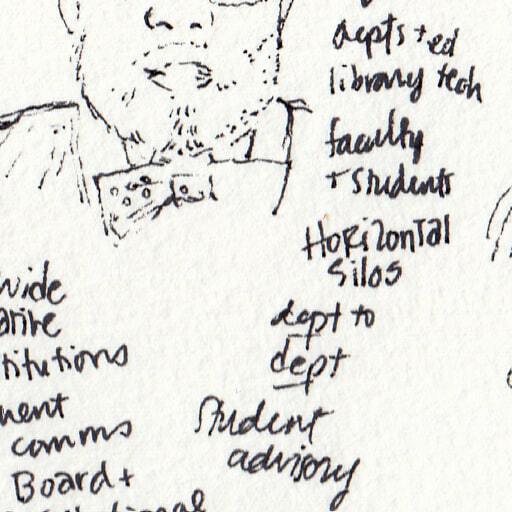 depts + ed
library tech
faculty
+ students
HoRizonTal
Silos
dept to
dept
Student
advisory
wide
titutions
ment
comms
Board +